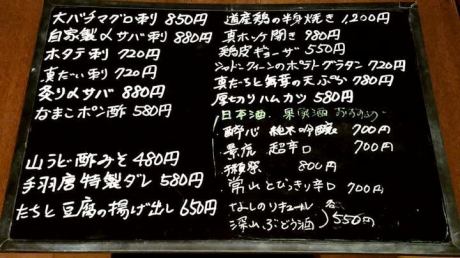 大バチマグロ刺 850円
自家製〆サバ刺 880円
ホタテ刺 720円
真だい刺 720円
炙り〆サバ 880円
なまこポン酢 580円
山うど酢みそ 480円
手羽唐 特製ダレ 580円
たちと豆腐の揚げ出し 650円
道産鶏の半身焼き 1,200円
真ホッケ開き 980円
鶏皮ギョーザ 550円
シャドークイーンのポテトグラタン 720円
真たちと舞茸の天ぷら 780円
厚切りハムカツ 580円
日本酒 果実酒 おすすめ
酔心 純米吟醸 700円
景虎 超辛口 700円
獺祭 800円
常山 とびっきり辛口 700円
なしのリキュール 各
深山ぶどう酒 550円